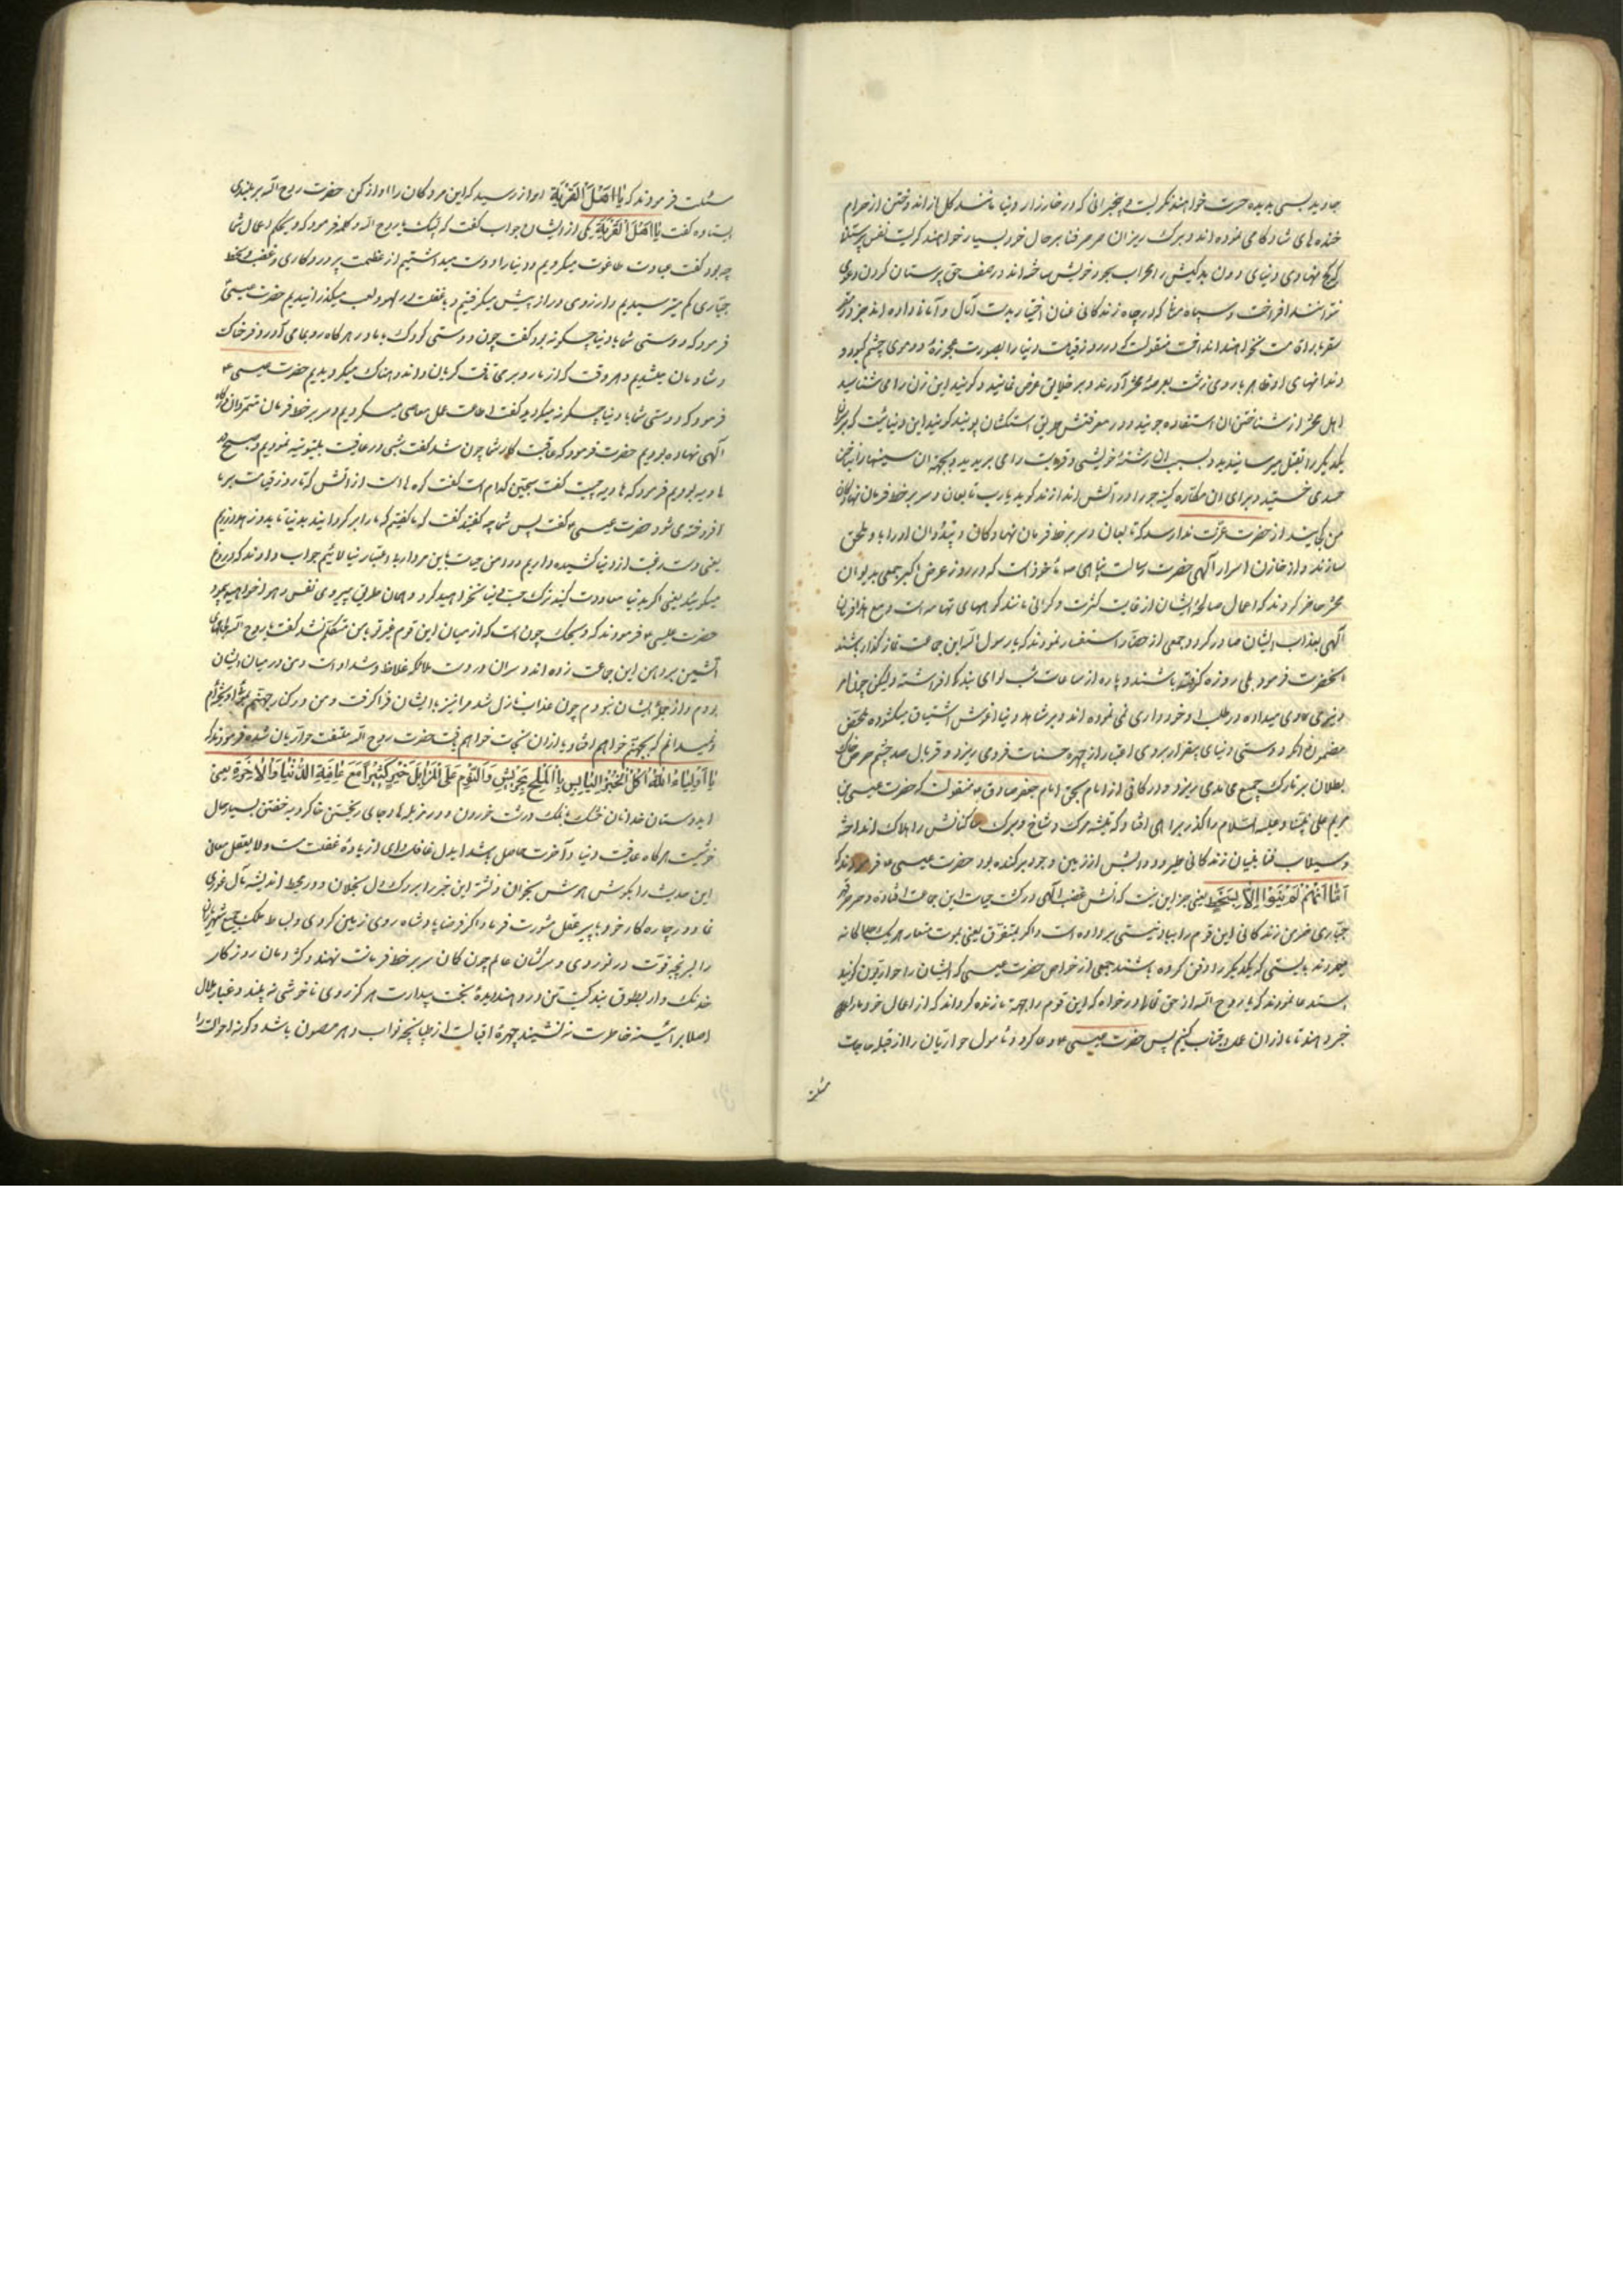 جاوید بسی بدیده حسرت خواهند نگریست بیخبرانی که در خارزار دنیا مانند گل از اندوختن از حرام
خنده های شادکامی نموده اند و برک ریزان صرصر فنا بر حال خود بسیار خواهند گریست نفس پرستان
کج نهادی دنیای دون بدکیش را محراب سجود خویش ساخته اند در صف حق پرستان گردن دعوی
نتوانند افراخت و سپاه که در چاه زندگانی عنان اختیار بدست آمال و امانی داده اند جز در
سقر نخواهند انداخت منقولست که در روز قیامت دنیا را بصورت عجوزهٔ دو موی چشم کبود و
دندانهای او ظاهر با روی زشت بعرصهٔ محشر آورند و بر خلایق عرض نمایند و گویند این زن را می شناسید
اهل محشر از شناختن آن استعاذه جویند و در معرفتش طریق استنکاف پویند گویند این دنیائیست که بر سر آن
یکدیگر را بقتل میرسانیدید و بسبب آن رشتهٔ خویشی و قرابت را می بریدید و بجهة آن سینها را بناخن
حسدی خستید و برای آن کینه جو را در آتش اندازند گوید یارب تابعان و سر بر خط فرمان نهادگان
من کجایند از حضرت عزت ندا رسد که تابعان و سر بر خط فرمان نهادگان و پیروان او را با و ملحق
سازند و از خازن اسرار آلهی حضرت رسالت پناهی ص ماخوذ است که در روز عرض اکبر جمعی بدیوان
محشر حاضر گردند که اعمال صالحهٔ ایشان از غایت کثرت و گرانی مانند کوههای تهامه است و مع هذا فرمان
آلهی بعذاب ایشان صادر گردد جمعی از حضار استفسار نمودند که یا رسول الله این جماعت نماز گذار باشند
آنحضرت فرمود بلی روزه گرفته باشند و پاره از ساعات شب لوای بندگی افراشته ولیکن چون امر
دنیوی روی میداده در طلب او خودداری نمی نموده اند و بر شاهد دنیا آغوش اشتیاق میگشوده
مضمر نماند که دوستی دنیای بیقرار بروی اعتبار از چهره حسنات فروی ریزد و غربال صد چشم حرص خاک
بطلان بر تارک جمیع عبادی ریزد و در کافی از امام بحق امام جعفر صادق ع منقولست که حضرت عیسی بن
مریم علی نبینا و علیه السلام را گذر بر اهل افتاد که تیشه مرک و شاخ و برک ساکنانش را بهلاک انداخته
و سیلاب فنا بنیان زندگانی طیور و دوابش از زمین وجود برکنده بود حضرت عیسی ع فرمودند که
اَمَّا اِنَّهُمْ لَمْ یَمُوتُوا اِلَّا بِسَخَطٍ یعنی جز این نیست که آتش غضب آلهی در کشت حیات این جماعت افتاده و صرصر قهر
جباری خرمن زندگانی این قوم را بباد نیستی برداده است و اگر بتفرق یعنی بموت متعارف هریک جداگانه
میمردند بایستی که یکدیگر را دفن کرده باشند جمعی از خواص حضرت عیسی که ایشان را حواریون گویند
استدعا نمودند که یا روح الله از حق تعالی درخواه که این قوم را جهة ما زنده گرداند که از اعمال خود ما را
خبر دهند تا ما از آن عمل اجتناب کنیم پس حضرت عیسی ع دعا کرد و مامول حواریان را از قبله حاجات
مسئلت
مسئلت فرمودند که یٰا اَهْلَ الْقَرْیَةِ آواز رسید که این مردگان را آواز کن حضرت روح الله بر بلندی
ایستاده گفت یٰا اَهْلَ الْقَرْیَةِ یکی از ایشان جواب گفت که لبیک یا روح الله و کلمه فرمود که ویحکم اعمال شما
چه بود گفت عبادت طاغوت میکردیم و دنیا را دوست میداشتیم از عظمت پروردگاری و غضب و سخط
جباری کم میترسیدیم و آرزوی دراز پیش میگرفتیم و با غفلت در لهو و لعب میگذرانیدیم حضرت عیسی
فرمود که دوستی شما با دنیا چگونه بود گفت چون دوستی کودک با مادر هرگاه رو بما می آورد فرحناک
و شادمان میشدیم و هر وقت که از ما رو بر می تافت گریان و اندوهناک میگردیدیم حضرت عیسی ع
فرمود که دوستی شما با دنیا چگونه میگردید گفت اطاعت اهل معاصی میکردیم و سر بر خط فرمان متمردان درگاه
آلهی نهاده بودیم حضرت فرمود که عاقبت کار شما چون شد گفت شبی در عافیت بیتوته نمودیم و صبح در
هاویه بودیم فرمود که هاویه چیست گفت سجین گفت سجین کدام است گفت کوه ها است از آتش که تا روز قیامت بر ما
افروخته می شود حضرت عیسی ع گفت پس شما چه گفتید گفت که ما گفتیم که ما را برگردانید بدنیا تا بدو زهد ورزیم
یعنی دست رغبت از دنیا کشیده داریم و دامن حیات باین مردار بد اعتبار نیالائیم جواب دادند که دروغ
میگوئید یعنی اگر بدنیا معاودت کنید ترک حب دنیا نخواهید کرد و همان طریق پیروی نفس را خواهید پیمود
حضرت عیسی ع فرمودند که ویحک چون است که از میان این قوم غیر تو با من متکلم نشد گفت یا روح الله لجامهای
آتشین بر دهن این جماعت زده اند و سر آن در دست ملائکه غلاظ و شداد است و من در میان ایشان
بودم و از جملهٔ ایشان نبودم چون عذاب نازل شد مرا نیز با ایشان فرا گرفت و من در کنار جهنم بموئی آویخته ام
و نمیدانم که بجهنم خواهم افتاد یا از آن نجات خواهم یافت حضرت روح الله ملتفت حواریان شده فرمودند که
یٰا اَوْلِیٰاءَ اللّٰهِ اَکْلُ الْخُبْزِ الْیٰابِسِ بِالْمِلْحِ الْجَرِیشِ وَالنَّوْمُ عَلَی الْمَزٰابِلِ خَیْرٌ کَثِیْرٌ مَعَ عٰافِیَةِ الدُّنْیٰا وَالْاٰخِرَةِ یعنی
ای دوستان خدا نان خشک با نمک درشت خوردن و در مزبله ها و جای ریختن خاکروبه خفتن بسیار حال
خوشیست هرگاه عافیت دنیا و آخرت حاصل باشد ای دل غافل و ای از باده غفلت مست و لایعقل معانی
این حدیث را بگوش هوش بخوان و نشتر این خبر را بر رک دل بخلان و در محیط اندیشه مآل غوری
نما و در چاره کار خود با پیر عقل مشورت فرما و اگر فرضا پادشاه روی زمین گردی و بساط ملک جمیع شهریاران
را بسر پنجه قوت درنوردی و سرکشان عالم چون کمان سر بر خط فرمانت نهند و گردمان روزگار
خدنک وار بطوق بندگیت تن در دهند دیدهٔ بخت بیدارت هرگز روی ناخوشی نبیند و غبار ملال
اصلا بر آئینهٔ خاطرت ننشیند چهرهٔ اقبالت از طپانچهٔ نوایب دهر مصون باشد و گونهٔ احوالت را